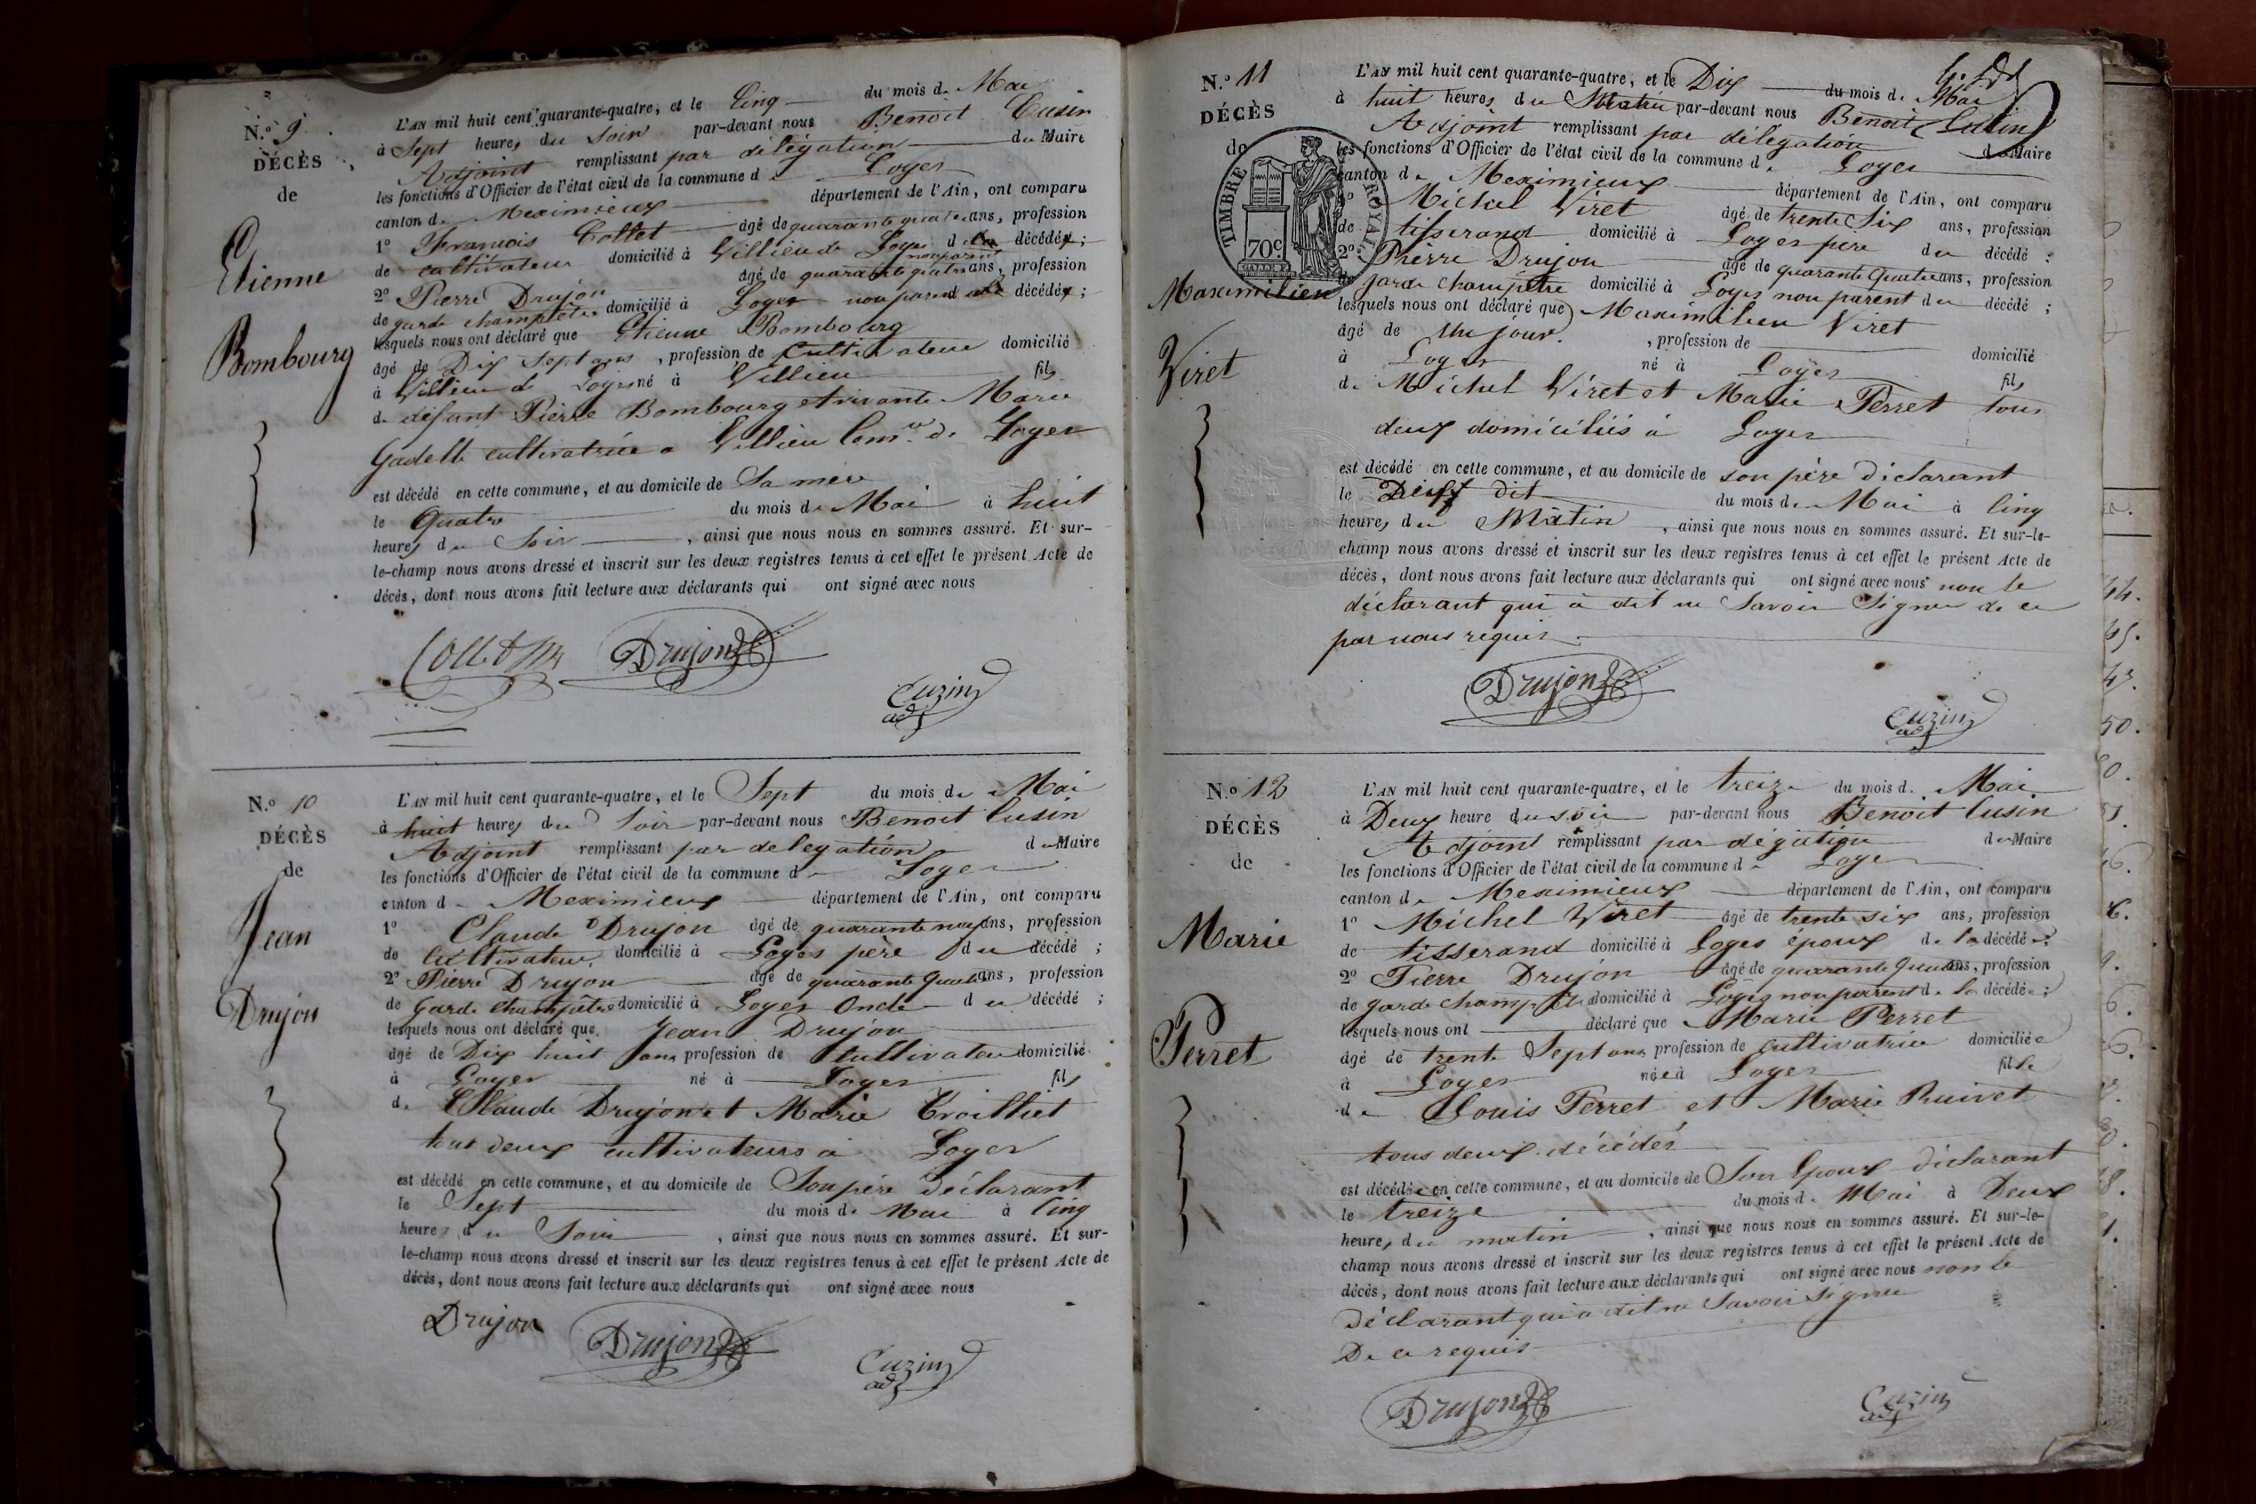 N.° 9
DÉCÈS
de
Etienne
Bombourg
L'AN mil huit cent quarante-quatre, et le Cinq du mois de Mai
à Sept heures du Soir par-devant nous Benoit Cusin
Adjoint remplissant par délégation du Maire
les fonctions d'Officier de l'état civil de la commune de Loyes
canton de Meximieux département de l'Ain, ont comparu
1° François Collet âgé de quarante quatre ans, profession
de cultivateur domicilié à Villieu de Loyes non parent du décédé ;
2° Pierre Drujon âgé de quarante quatre ans, profession
de garde champêtre domicilié à Loyes non parent du décédé ;
lesquels nous ont déclaré que Etienne Bombourg
âgé de Dix Sept ans, profession de Cultivateur domicilié
à Villieu de Loyes né à Villieu fils
de défunt Pierre Bombourg et vivante Marie
Gadelle cultivatrice a Villieu Com.ne de Loyes
est décédé en cette commune, et au domicile de Sa mère
le Quatre du mois de Mai à huit
heures du Soir, ainsi que nous nous en sommes assuré. Et sur-
le-champ nous avons dressé et inscrit sur les deux registres tenus à cet effet le présent Acte de
décès, dont nous avons fait lecture aux déclarants qui ont signé avec nous
Drujon
Cuzin
adj
N.° 10
DÉCÈS
de
Jean
Drujon
L'AN mil huit cent quarante-quatre, et le Sept du mois de Mai
à huit heures du Soir par-devant nous Benoit Cusin
Adjoint remplissant par delegation du Maire
les fonctions d'Officier de l'état civil de la commune de Loyes
canton de Meximieux département de l'Ain, ont comparu
1° Claude Drujon âgé de quarante neuf ans, profession
de Cultivateur domicilié à Loyes père du décédé ;
2° Pierre Drujon âgé de quarante Quatre ans, profession
de Garde Champêtre domicilié à Loyes Oncle du décédé ;
lesquels nous ont déclaré que Jean Drujon
âgé de Dix huit ans profession de Cultivateur domicilié
à Loyes né à Loyes fils
de Claude Drujon et Marie Troilliet
tout deux cultivateurs à Loyes
est décédé en cette commune, et au domicile de Son père déclarant
le Sept du mois de Mai à Cinq
heures du Soir, ainsi que nous nous en sommes assuré. Et sur-
le-champ nous avons dressé et inscrit sur les deux registres tenus à cet effet le présent Acte de
décès, dont nous avons fait lecture aux déclarants qui ont signé avec nous
Drujon
Drujon
Cuzin
adj
N.° 11
DÉCÈS
de
TIMBRE ROYAL
70c
Maximilien
Viret
L'AN mil huit cent quarante-quatre, et le Dix du mois de Mai
à huit heures du Matin par-devant nous Benoit Cusin
Adjoint remplissant par délégation du Maire
les fonctions d'Officier de l'état civil de la commune de Loyes
canton de Meximieux département de l'Ain, ont comparu
1° Michel Viret âgé de trente Six ans, profession
de tisserand domicilié à Loyes père du décédé ;
2° Pierre Drujon âgé de quarante Quatre ans, profession
de garde champêtre domicilié à Loyes non parent du décédé ;
lesquels nous ont déclaré que Maximilien Viret
âgé de Un jour, profession de domicilié
à Loyes né à Loyes fils
de Michel Viret et Marie Perret tous
deux domiciliés à Loyes
est décédé en cette commune, et au domicile de son père déclarant
le dit du mois de Mai à Cinq
heures du Matin, ainsi que nous nous en sommes assuré. Et sur-le-
champ nous avons dressé et inscrit sur les deux registres tenus à cet effet le présent Acte de
décès, dont nous avons fait lecture aux déclarants qui ont signé avec nous non le
déclarant qui a dit ne Savoir Signer de ce
par nous requis
Drujon
Cuzin
adj
N.° 12
DÉCÈS
de
Marie
Perret
L'AN mil huit cent quarante-quatre, et le treize du mois de Mai
à Deux heure du soir par-devant nous Benoit Cusin
Adjoint remplissant par dégation du Maire
les fonctions d'Officier de l'état civil de la commune de Loyes
canton de Meximieux département de l'Ain, ont comparu
1° Michel Viret âgé de trente six ans, profession
de tisserand domicilié à Loyes époux de la décédée ;
2° Pierre Drujon âgé de quarante Quatre ans, profession
de garde champêtre domicilié à Loyes non parent de la décédée ;
lesquels nous ont déclaré que Marie Perret
âgé de trente Sept ans profession de cultivatrice domiciliée
à Loyes née à Loyes fille
de Louis Perret et Marie Ruivet
tous deux décédés
est décédée en cette commune, et au domicile de Son Epoux déclarant
le treize du mois de Mai à Deux
heures du matin, ainsi que nous nous en sommes assuré. Et sur-le-
champ nous avons dressé et inscrit sur les deux registres tenus à cet effet le présent Acte de
décès, dont nous avons fait lecture aux déclarants qui ont signé avec nous non le
Déclarant qui a dit ne Savoir Signer
De ce requis
Drujon
Cuzin
adj